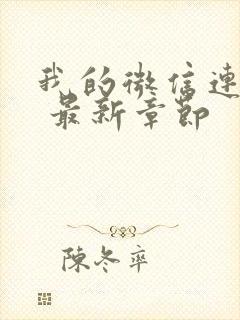 我的微信連
最新章節
陳冬率